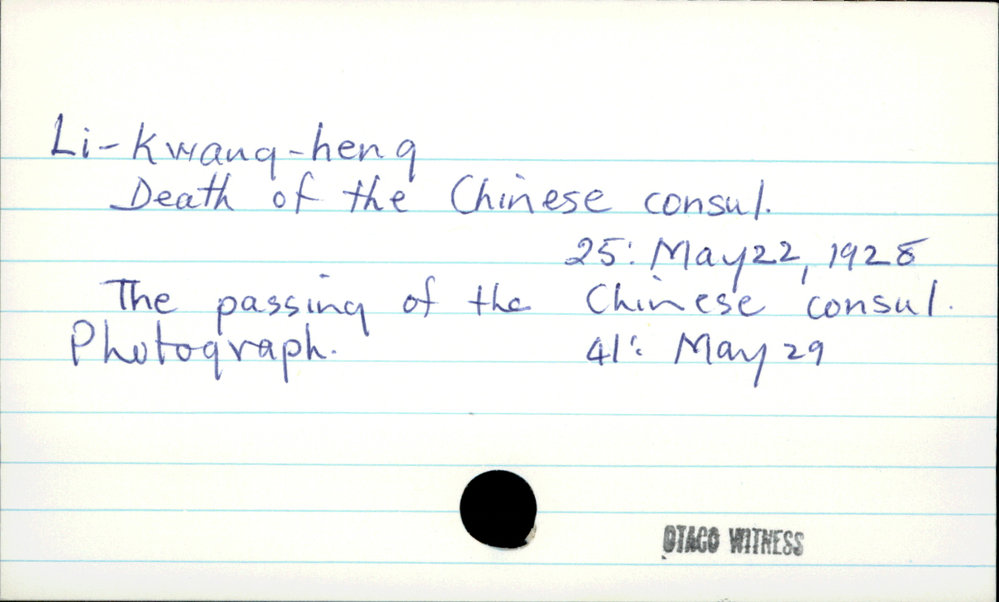 Li-Kwang-heng
Death of the Chinese consul.
25: May 22, 1928
The passing of the Chinese consul.
Photograph. 41: May 29
OTAGO WITNESS